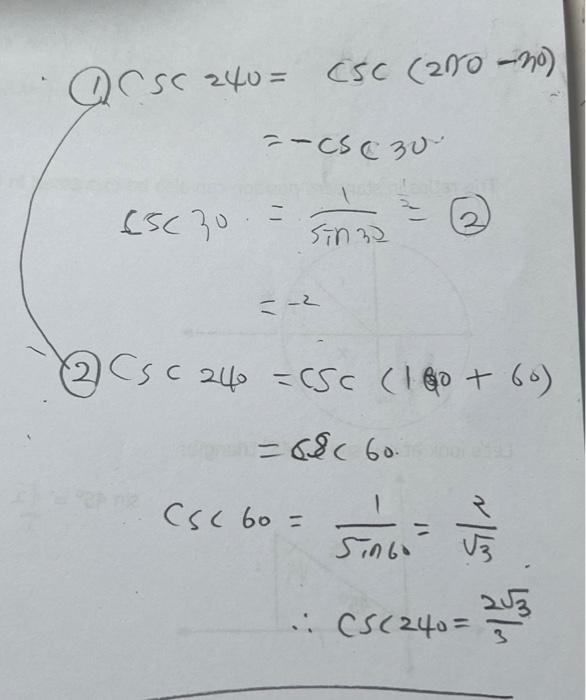 ① csc 240 = csc (270 - 30)
= - csc 30
csc 30 = 1/sin 30 = ②
1/2
= -2
② csc 240 = csc (180 + 60)
= csc 60
csc 60 = 1/sin 60 = 2/√3
∴ csc 240 = 2√3/3